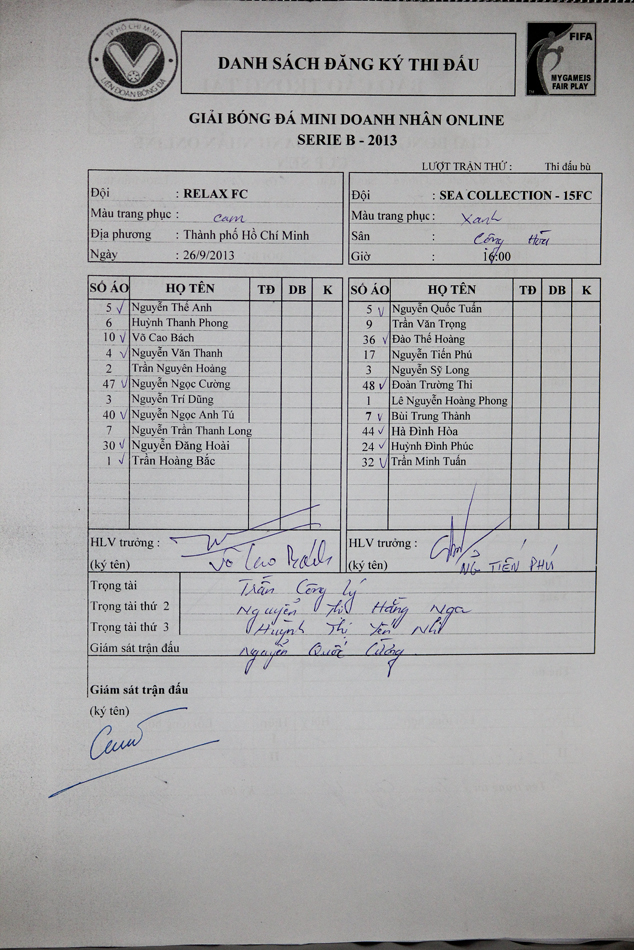 TP HỒ CHÍ MINH
LIÊN ĐOÀN BÓNG ĐÁ
DANH SÁCH ĐĂNG KÝ THI ĐẤU
FIFA
MY GAME IS
FAIR PLAY
GIẢI BÓNG ĐÁ MINI DOANH NHÂN ONLINE
SERIE B - 2013
LƯỢT TRẬN THỨ : Thi đấu bù
Đội : RELAX FC
Màu trang phục : cam
Địa phương : Thành phố Hồ Chí Minh
Ngày : 26/9/2013
Đội : SEA COLLECTION - 15FC
Màu trang phục : Xanh
Sân : Cộng Hòa
Giờ : 16:00
SỐ ÁO HỌ TÊN TĐ DB K
5 ✓ Nguyễn Thế Anh
6 Huỳnh Thanh Phong
10 ✓ Võ Cao Bách
4 ✓ Nguyễn Văn Thanh
2 Trần Nguyên Hoàng
47 ✓ Nguyễn Ngọc Cường
3 Nguyễn Trí Dũng
40 ✓ Nguyễn Ngọc Anh Tú
7 Nguyễn Trần Thanh Long
30 ✓ Nguyễn Đăng Hoài
1 ✓ Trần Hoàng Bắc
SỐ ÁO HỌ TÊN TĐ DB K
5 ✓ Nguyễn Quốc Tuấn
9 Trần Văn Trọng
36 ✓ Đào Thế Hoàng
17 Nguyễn Tiến Phú
3 Nguyễn Sỹ Long
48 ✓ Đoàn Trường Thi
1 Lê Nguyễn Hoàng Phong
7 ✓ Bùi Trung Thành
44 ✓ Hà Đình Hòa
24 ✓ Huỳnh Đình Phúc
32 ✓ Trần Minh Tuấn
HLV trưởng :
(ký tên) Võ Cao Bách
HLV trưởng :
(ký tên) NG TIẾN PHÚ
Trọng tài Trần Công Lý
Trọng tài thứ 2 Nguyễn Thị Hằng Nga
Trọng tài thứ 3 Huỳnh Thị Yến Nhi
Giám sát trận đấu Nguyễn Quốc Cường
Giám sát trận đấu
(ký tên)